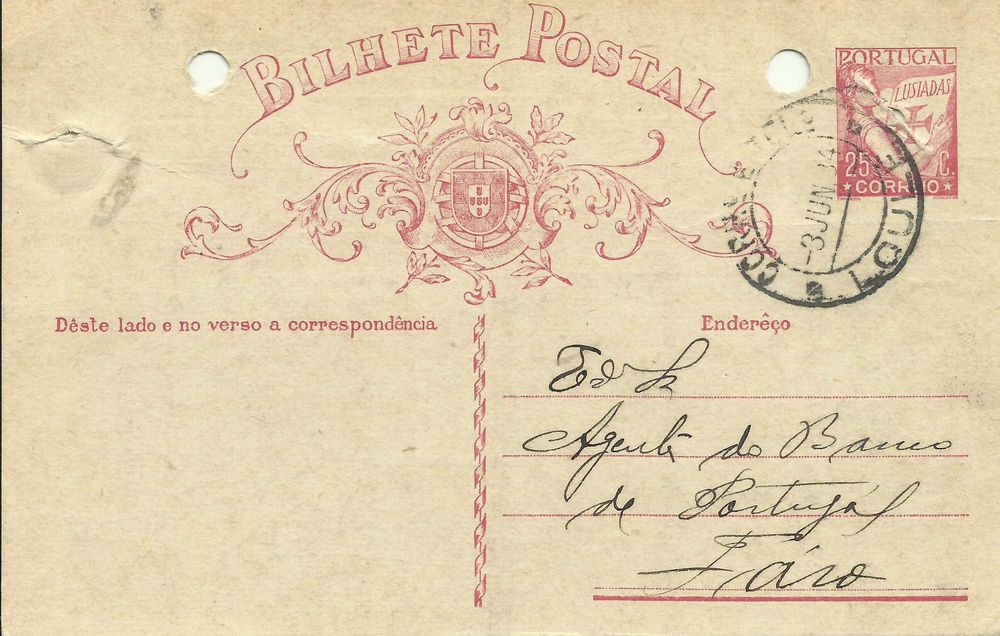 BILHETE POSTAL
PORTUGAL
LUSIADAS
25 C.
CORREIO
-3 JUN
LOULE
Dêste lado e no verso a correspondência
Enderêço
Agente do Banco
de Portugal
Fáro